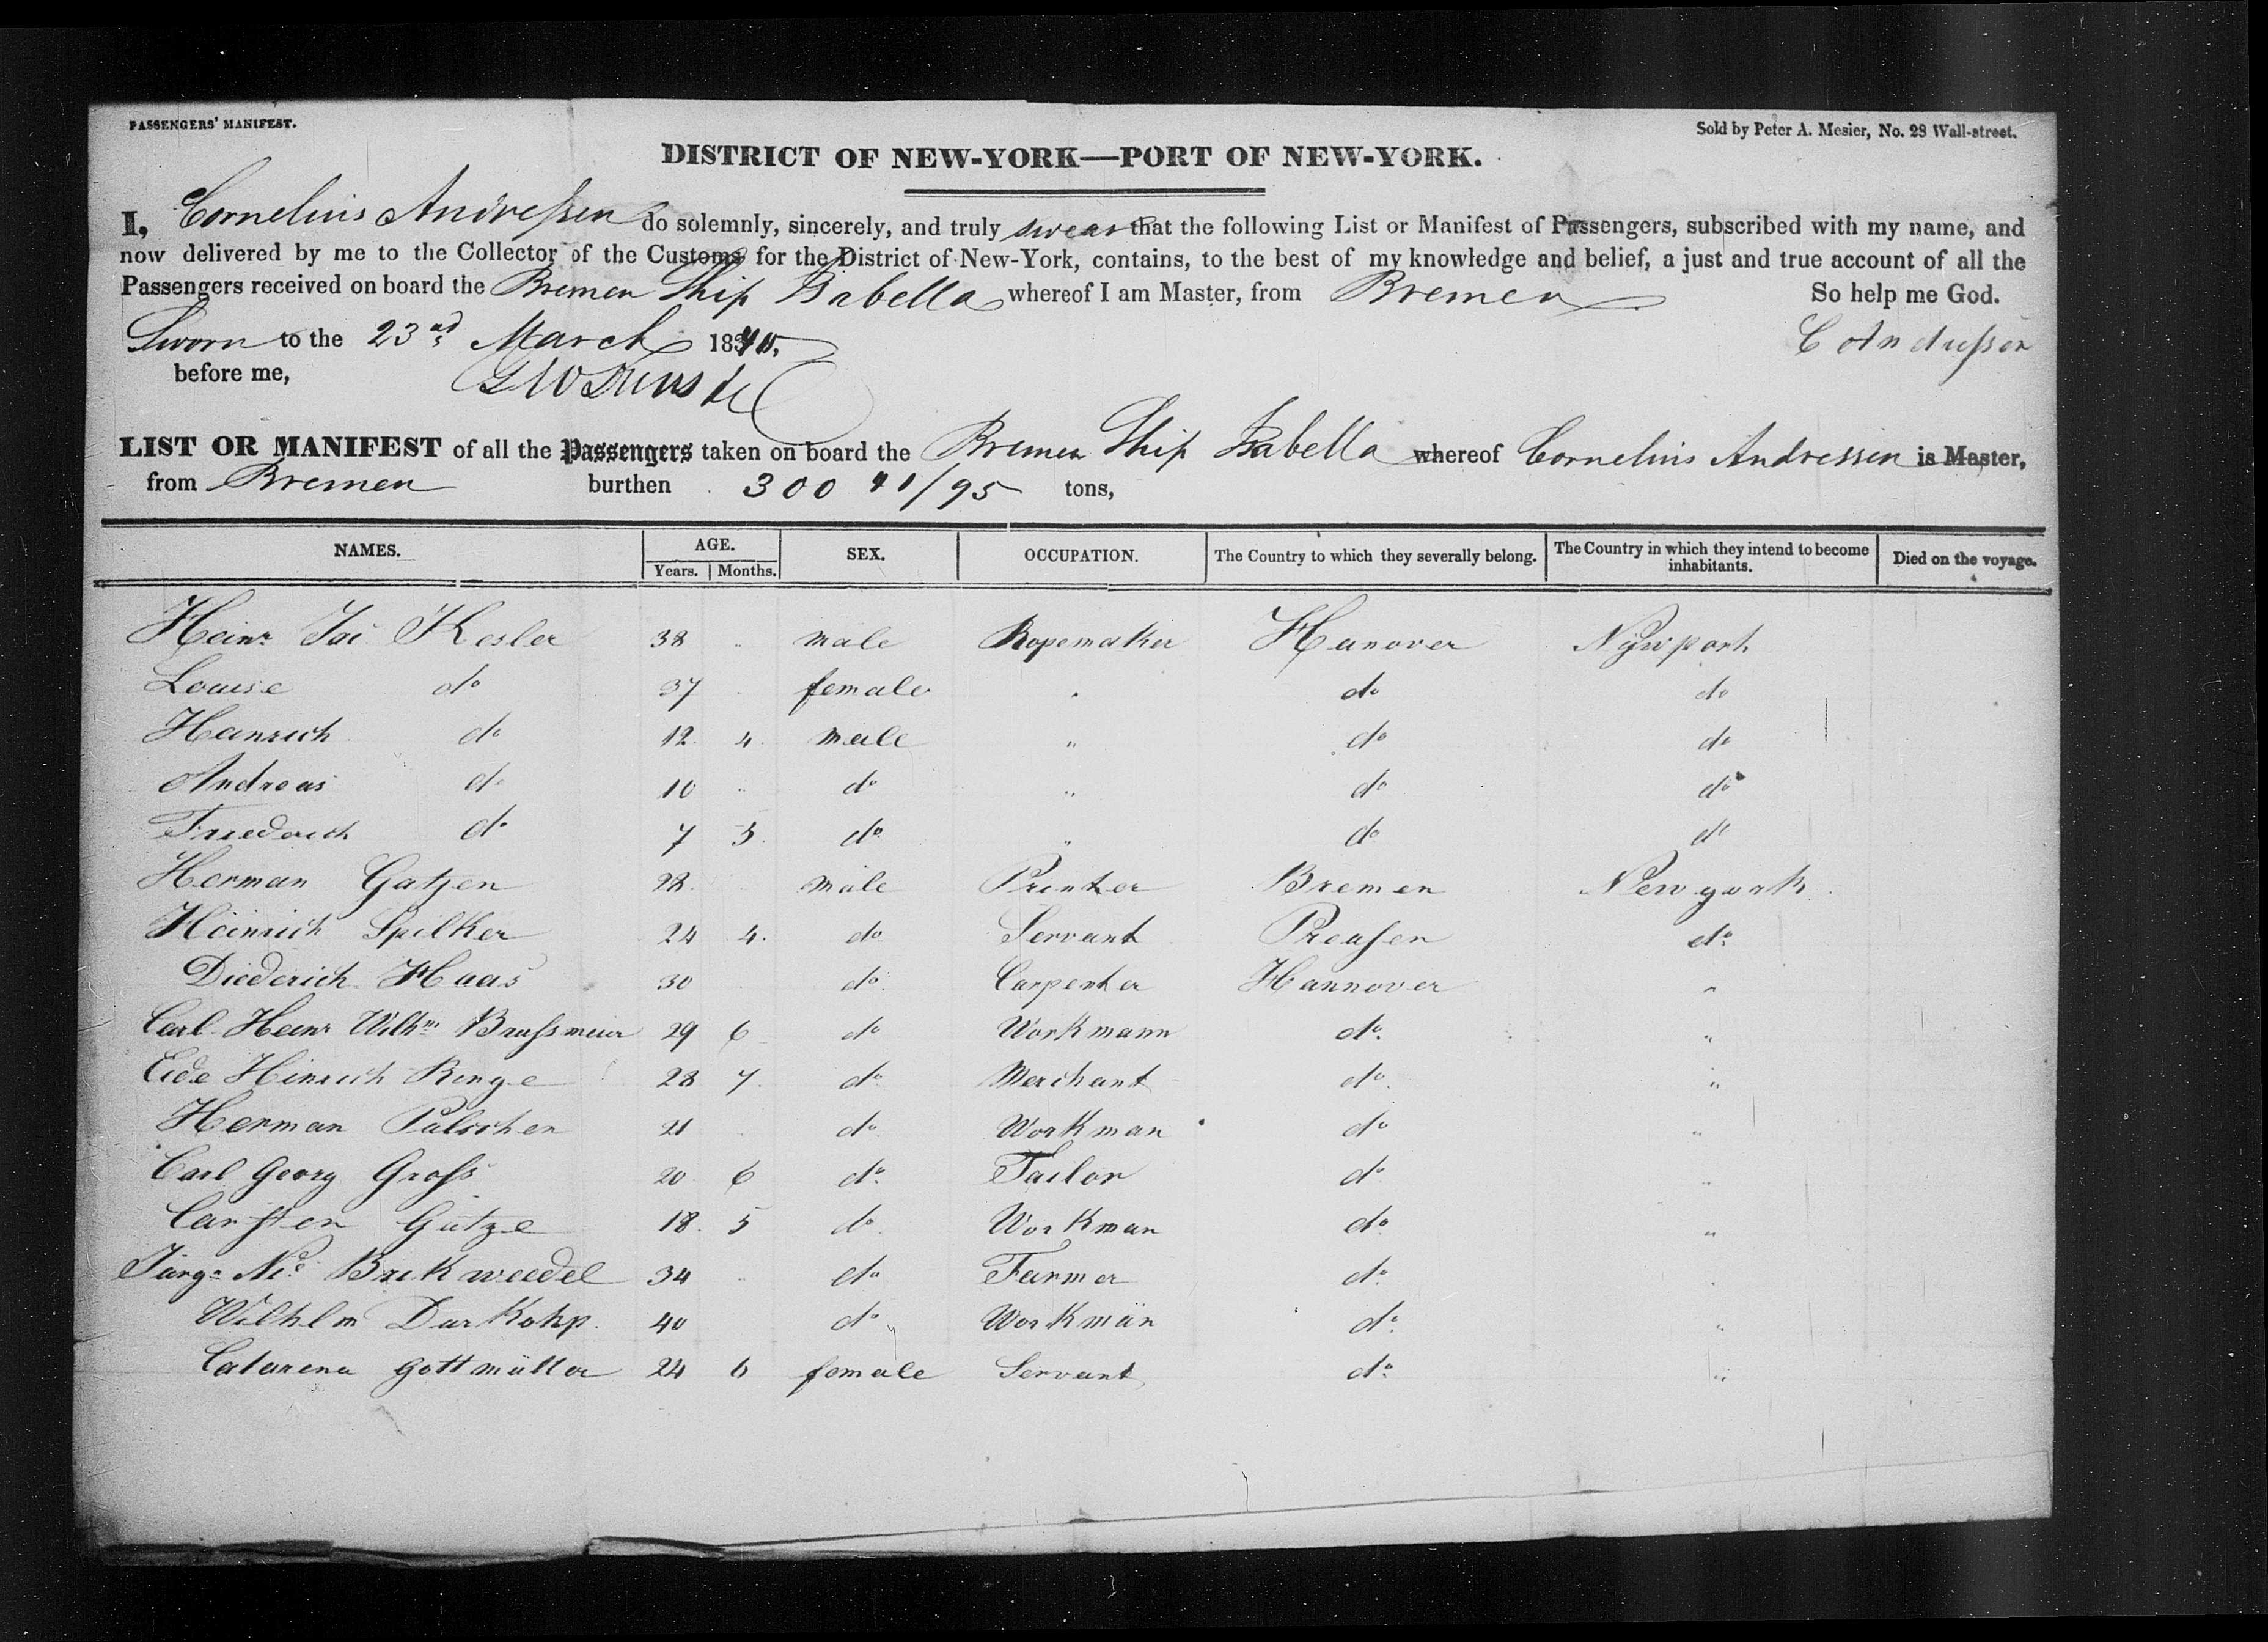 PASSENGERS' MANIFEST.
Sold by Peter A. Mesier, No. 28 Wall-street.
DISTRICT OF NEW-YORK—PORT OF NEW-YORK.
I, Cornelius Andreſsen do solemnly, sincerely, and truly swear that the following List or Manifest of Passengers, subscribed with my name, and
now delivered by me to the Collector of the Customs for the District of New-York, contains, to the best of my knowledge and belief, a just and true account of all the
Passengers received on board the Bremen Ship Isabella whereof I am Master, from Bremen So help me God.
Sworn to the 23rd March 1840. C Andreſsen
before me,
LIST OR MANIFEST of all the Passengers taken on board the Bremen Ship Isabella whereof Cornelius Andressen is Master,
from Bremen burthen 300 41/95 tons,
NAMES. AGE. SEX. OCCUPATION. The Country to which they severally belong. The Country in which they intend to become inhabitants. Died on the voyage.
Years. Months.
Heinr Jac Kesler 38 " male Ropemaker Hanover Newyork
Louise do 37 female " do do
Heinrich do 12 4 male " do do
Andreas do 10 " do " do do
Friederich do 7 3 do " do do
Herman Gatjen 28 male Printer Bremen Newyork
Heinrich Spilker 24 4 do Servant Preuſsen do
Diederich Haas 30 do Carpenter Hannover "
Carl Heinr Wilhm Bruſsmeier 29 6 do Workmann do "
Eide Hinrich Renge 28 7 do Merchant do "
Herman Palschen 21 do Workman do "
Carl Georg Groſs 20 6 do Tailor do "
Carsten Gätze 18 5 do Workman do "
Jürg: Nic Brekweedel 34 do Farmer do "
Wilhlm Darkohp. 40 do Workman do "
Catarena Gottmüller 24 6 female Servant do "